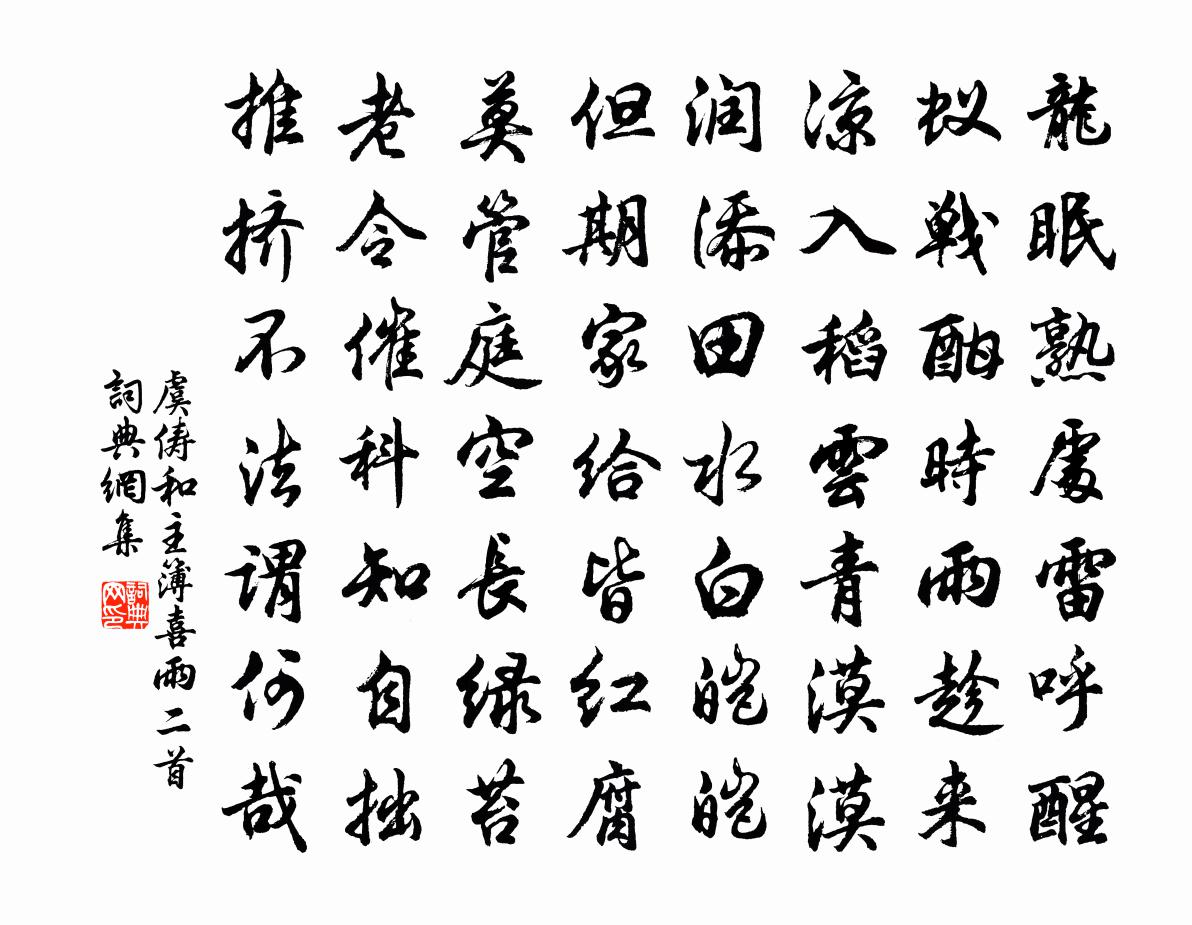 龍眠熟處雷呼醒
蚁戦酣時雨趁来
凉入稻雲青漠漠
润添田水白皑皑
但期家给皆红腐
莫管庭空長绿苔
老令催科知自拙
推挤不法謂何哉
虞俦和主簿喜雨二首
詞典網集
詞典网印